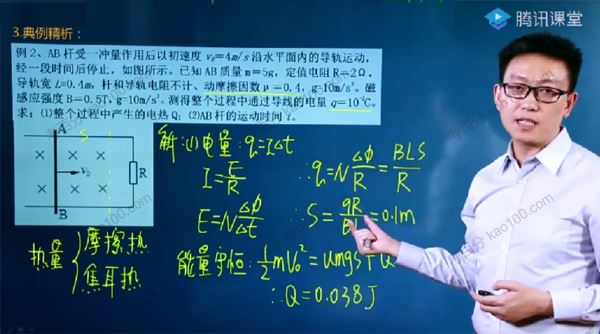 腾讯课堂
3.典例精析:
例 2、AB杆受一冲量作用后以初速度 v₀=4m/s沿水平面内的导轨运动,
经一段时间后停止,如图所示。已知AB质量m=5g,定值电阻R=2Ω,
导轨宽L=0.4m,杆和导轨电阻不计、动摩擦因数μ=0.4,g=10m/s²。磁
感应强度B=0.5T,g=10m/s²。测得整个过程中通过导线的电量 q=10⁻²C。
求:(1)整个过程中产生的电热Q;(2)AB杆的运动时间 t。
A
S
v₀
R
B
解:(1)电量:q=IΔt
I=E/R
E=NΔΦ/Δt
∴q=NΔΦ/R=BLS/R
∴S=qR/BL=0.1m
热量{摩擦热
焦耳热
能量守恒:½mv₀²=μmgS+Q
∴Q=0.038J
考百分 kao100.com